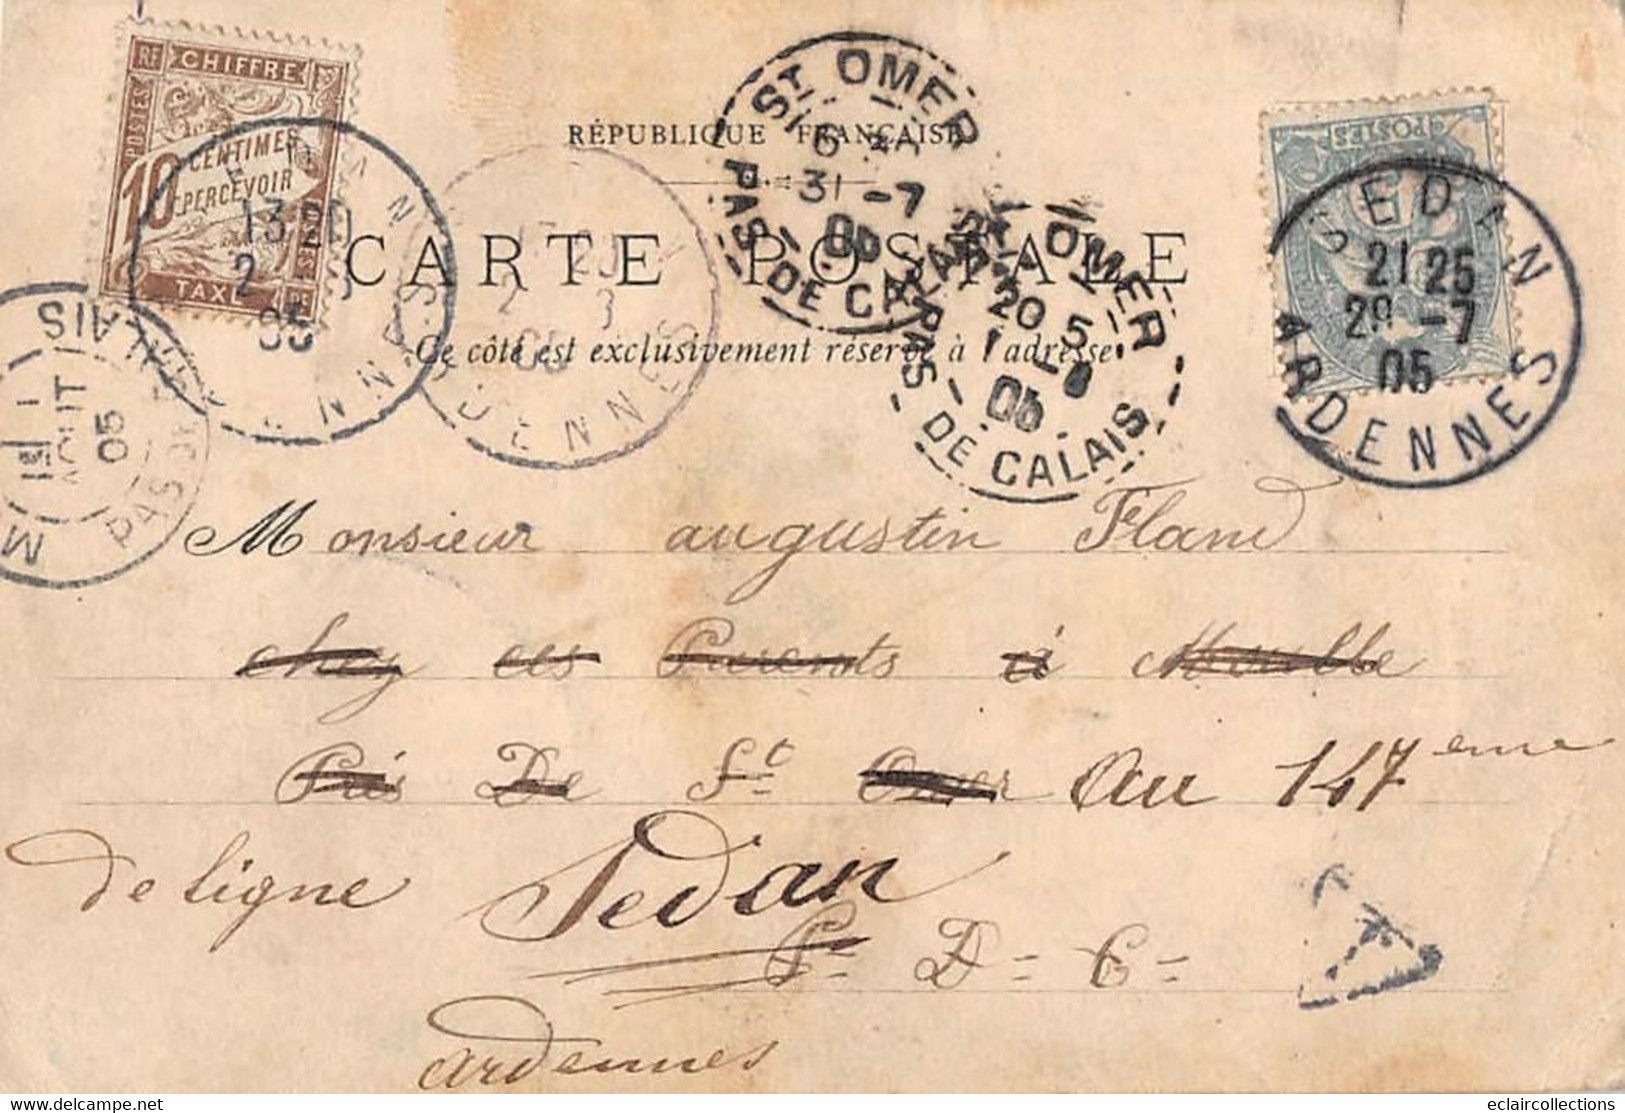 RF CHIFFRE
POSTES
10 CENTIMES
PERCEVOIR
TAXE
RÉPUBLIQUE FRANÇAISE
CARTE POSTALE
Ce côté est exclusivement réservé à l'adresse
ST OMER
31 -7
05
PAS DE CALAIS
ST OMER
20 5
1 -8
05
PAS DE CALAIS
POSTES
SEDAN
21 25
29 -7
05
ARDENNES
13
2
05
ENNES
ENNES
1
AOUT
05
PAS DE CALAIS
Monsieur augustin Fland
chez ces Parents à
Près De St Omer Au 147eme
de ligne Sedan
P= D= C=
ardennes
T
eclaircollections
delcampe.net